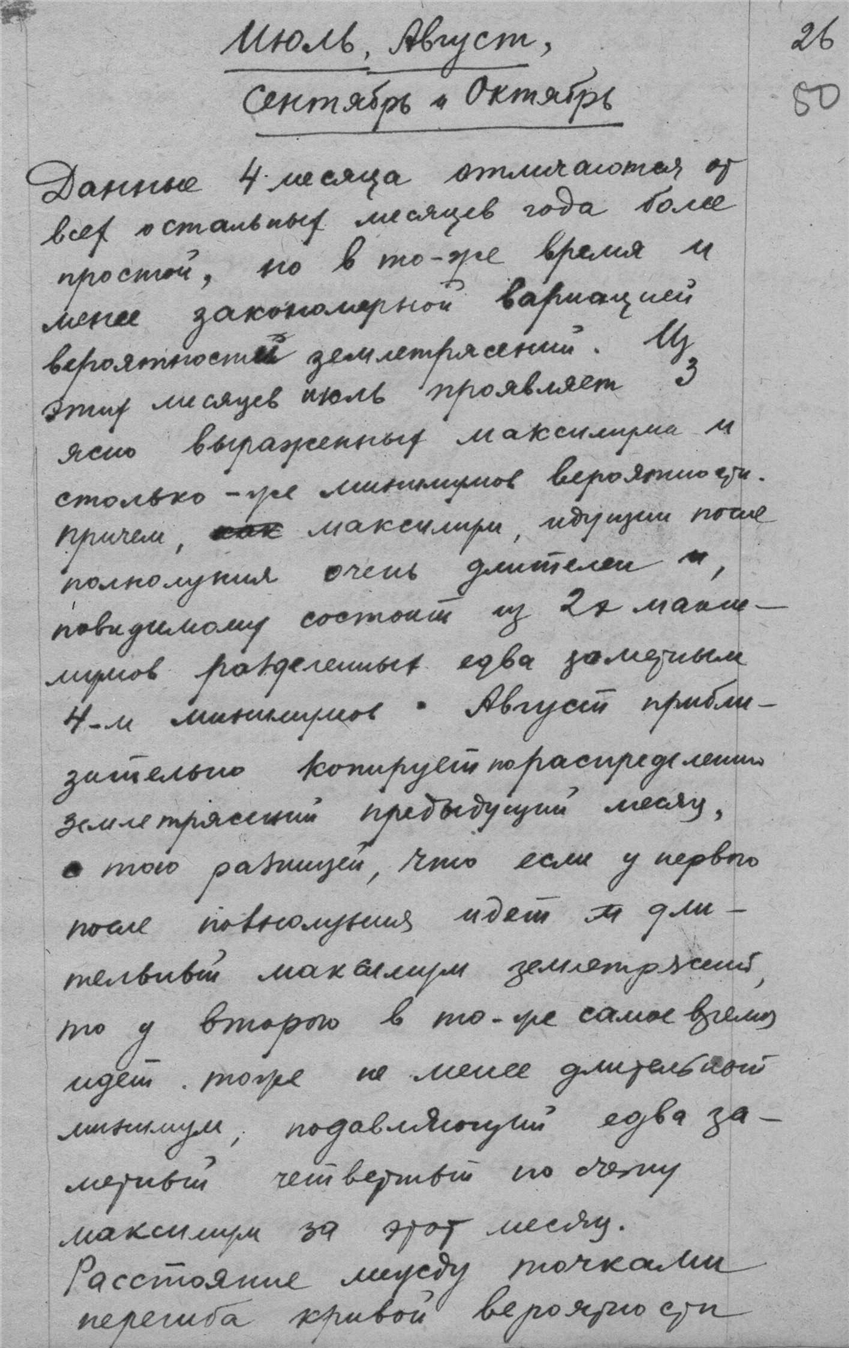 Июль, Август,
26
Сентябрь и Октябрь
50
Данные 4 месяца отличаются от
всех остальных месяцев года более
простой, но в то-же время и
менее закономерной вариацией
вероятностей землетрясений. Из
этих месяцев июль проявляет 3
ясно выраженных максимума и
столько-же минимумов вероятности.
Причем, как максимум, идущий после
полнолуния очень длителен и,
повидимому состоит из 2х макси-
мумов разделенных едва заметным
4-м минимумов. Август прибли-
зительно копирует по распределению
землетрясений предыдущий месяц,
с тою разницей, что если у первого
после полнолуния идет дли-
тельный максимум землетрясений,
то у второго в то-же самое время
идет тоже не менее длительный
минимум, подавляющий едва за-
метный четвертый по счету
максимум за этот месяц.
Расстояние между точками
перегиба кривой вероятности